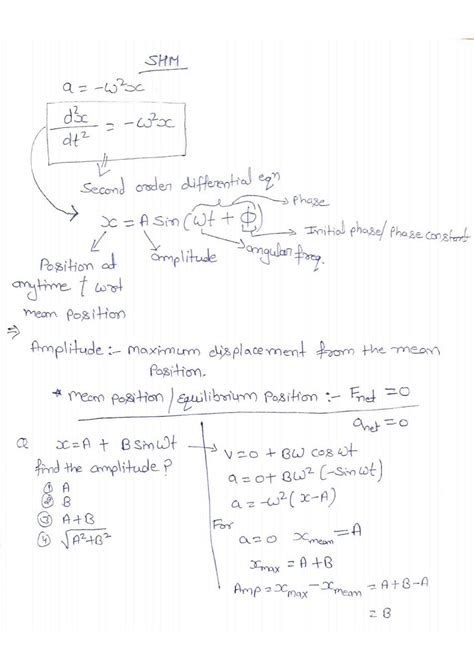 SHM
a = -ω²x
d²x/dt² = -ω²x
Second order differential eqn
Phase
x = A Sin(ωt + Φ)
Initial phase/Phase constant
Position at anytime t wrt mean position
amplitude
angular freq.
⇒
Amplitude :- maximum displacement from the mean
Position.
* mean position / Equilibrium Position :- Fnet = 0
anet = 0
Q x = A + B sinωt
find the amplitude ?
① A
② B
③ A+B
④ √A²+B²
v = 0 + Bω cosωt
a = 0 + Bω² (-Sinωt)
a = -ω² (x-A)
For
a = 0 xmean = A
xmax = A+B
Amp = xmax - xmean = A+B-A
= B